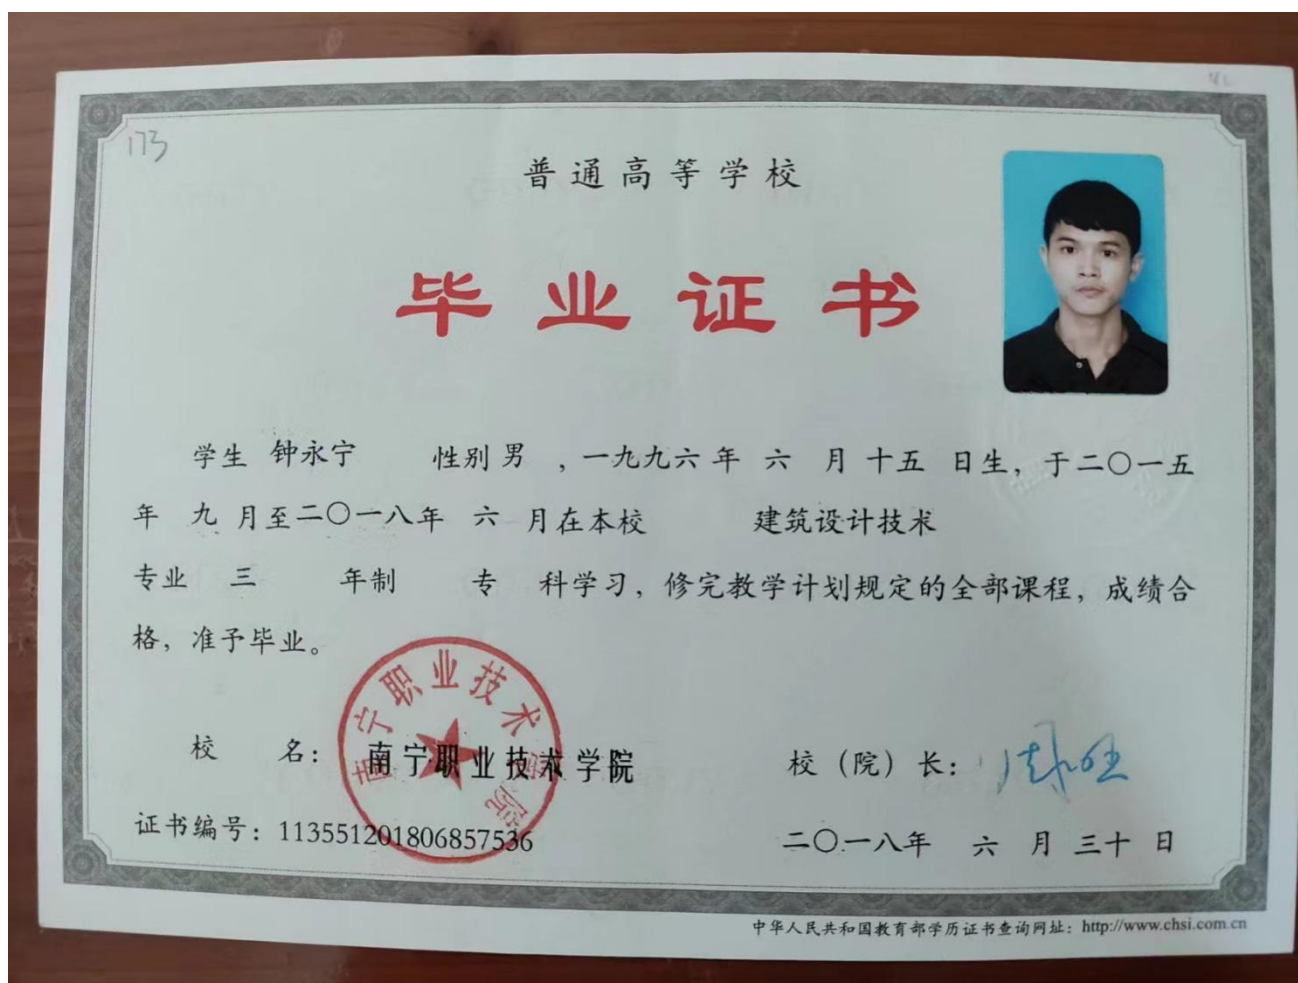 173
普通高等学校
毕业证书
学生 钟永宁 性别 男 ,一九九六 年 六 月 十五 日生，于二〇一五
年 九 月至二〇一八年 六 月在本校 建筑设计技术
专业 三 年制 专 科学习，修完教学计划规定的全部课程，成绩合
格，准予毕业。
南宁职业技术学院
校 名：南宁职业技术学院 校（院）长：
证书编号：113551201806857536 二〇一八年 六 月 三十 日
中华人民共和国教育部学历证书查询网址：http://www.chsi.com.cn